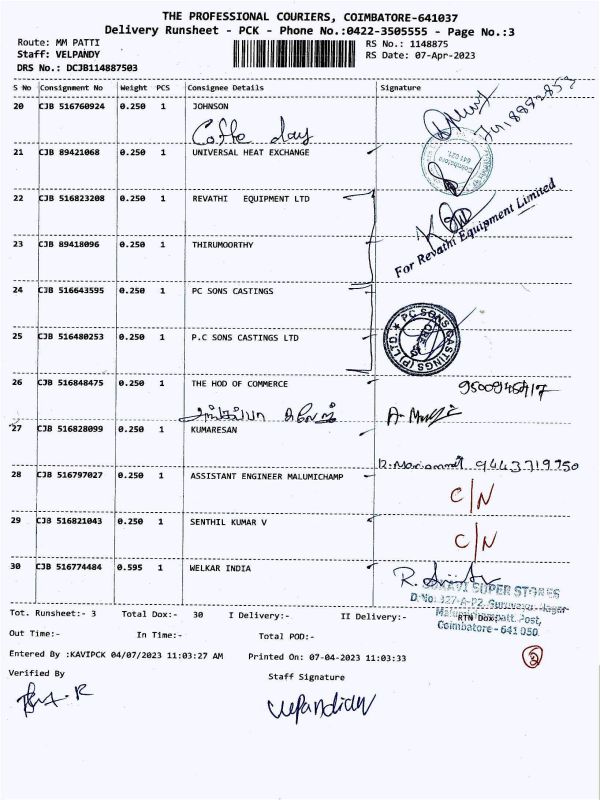 THE PROFESSIONAL COURIERS, COIMBATORE-641037
Delivery Runsheet - PCK - Phone No.:0422-3505555 - Page No.:3
Route: MM PATTI RS No.: 1148875
Staff: VELPANDY RS Date: 07-Apr-2023
DRS No.: DCJB114887503
S No Consignment No Weight PCS Consignee Details Signature
20 CJB 516760924 0.250 1 JOHNSON
Coffe day
21 CJB 89421068 0.250 1 UNIVERSAL HEAT EXCHANGE
Coimbatore
641 021
22 CJB 516823208 0.250 1 REVATHI EQUIPMENT LTD
For Revathi Equipment Limited
23 CJB 89418096 0.250 1 THIRUMOORTHY
24 CJB 516643595 0.250 1 PC SONS CASTINGS
PC SONS CASTINGS (P) LTD.
25 CJB 516480253 0.250 1 P.C SONS CASTINGS LTD
26 CJB 516848475 0.250 1 THE HOD OF COMMERCE
27 CJB 516828099 0.250 1 KUMARESAN
9443719750
28 CJB 516797027 0.250 1 ASSISTANT ENGINEER MALUMICHAMP
C/N
29 CJB 516821043 0.250 1 SENTHIL KUMAR V
C/N
30 CJB 516774484 0.595 1 WELKAR INDIA
SUPER STORES
Post,
Coimbatore - 641 050.
Tot. Runsheet:- 3 Total Dox:- 30 I Delivery:- II Delivery:- RTN Dox:-
Out Time:- In Time:- Total POD:-
Entered By :KAVIPCK 04/07/2023 11:03:27 AM Printed On: 07-04-2023 11:03:33
Verified By Staff Signature
velpandian